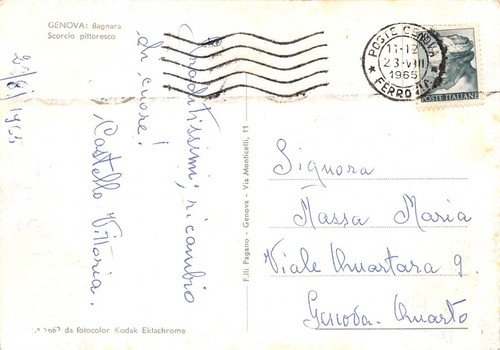 GENOVA: Bagnara
Scorcio pittoresco
Graditissimi, ricambio
di cuore!
Castello Vittoria.
F.lli Pagano - Genova - Via Monticelli, 11
da fotocolor Kodak Ektachrome
POSTE GENOVA
11-12
23-VIII
1965
FERROVIA
POSTE ITALIANE
Signora
Massa Maria
Viale Quartara 9.
Genova-Quarto